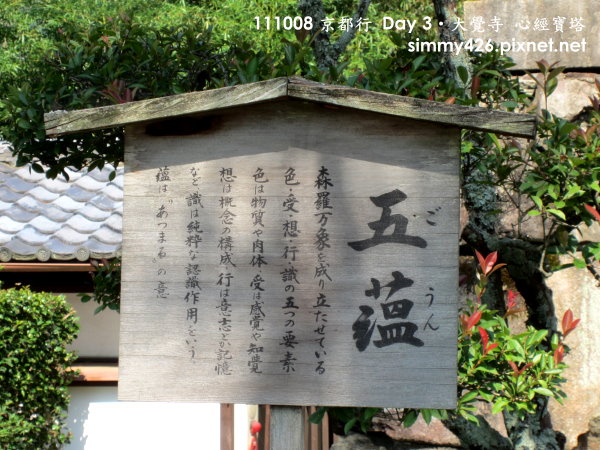 111008 京都行 Day 3・大覺寺 心經寶塔
simmy426.pixnet.net
五蘊
ごうん
森羅万象を成り立たせている
色・受・想・行・識の五つの要素
色は物質や肉体、受は感覚や知覚
想は概念の構成、行は意志とか記憶
など、識は純粋な認識作用をいう。
蘊は"あつまる"の意